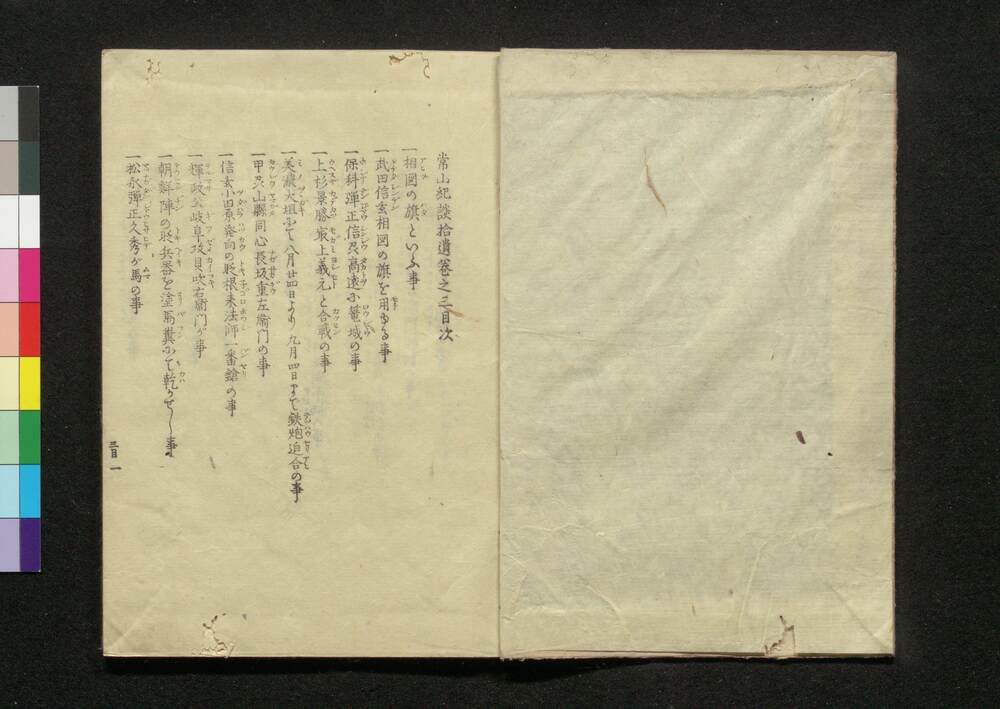 常山紀談拾遺巻之三目次
一相図の旗といふ事
一武田信玄相図の旗を用ゆる事
一保科弾正信州高遠に篭城の事
一上杉景勝最上義光と合戦の事
一美濃大垣にて八月廿四日より九月四日まで鉄炮迫合の事
一甲州山縣同心長坂重左衛門の事
一信玄小田原発向の時根来法師一番鎗の事
一輝政公岐阜攻貝吹右衛門が事
一朝鮮陣の時兵器を塗馬糞にて乾かせし事
一松永弾正久秀が馬の事
三目一